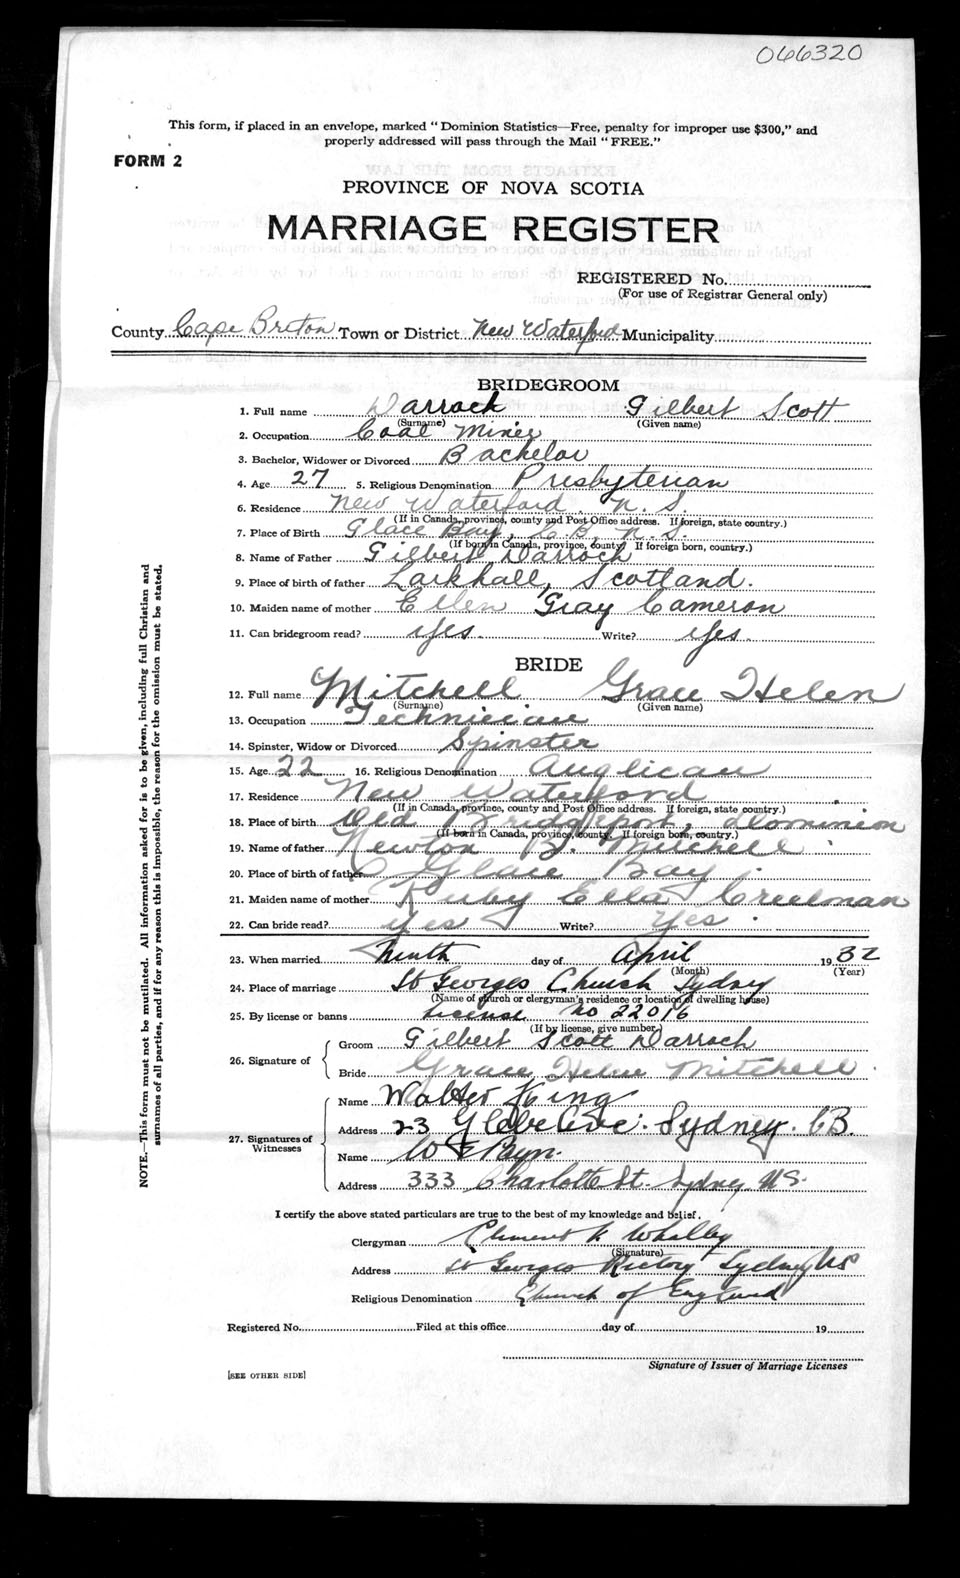 066320
This form, if placed in an envelope, marked “ Dominion Statistics—Free, penalty for improper use $300,” and
properly addressed will pass through the Mail “ FREE.”
FORM 2
PROVINCE OF NOVA SCOTIA
MARRIAGE REGISTER
REGISTERED No.
(For use of Registrar General only)
County Cape Breton Town or District New Waterford Municipality
BRIDEGROOM
1. Full name Darroch Gilbert Scott
(Surname) (Given name)
2. Occupation Coal Miner
3. Bachelor, Widower or Divorced Bachelor
4. Age 27 5. Religious Denomination Presbyterian
6. Residence New Waterford, N. S.
(If in Canada, province, county and Post Office address. If foreign, state country.)
7. Place of Birth Glace Bay, C. B., N. S.
(If born in Canada, province, county. If foreign born, country.)
8. Name of Father Gilbert Darroch
9. Place of birth of father Larkhall, Scotland.
10. Maiden name of mother Ellen Gray Cameron
11. Can bridegroom read? Yes. Write? Yes.
BRIDE
12. Full name Mitchell Grace Helen
(Surname) (Given name)
13. Occupation Technician
14. Spinster, Widow or Divorced Spinster
15. Age 22 16. Religious Denomination Anglican
17. Residence New Waterford
(If in Canada, province, county and Post Office address. If foreign, state country.)
18. Place of birth Old Bridgeport, Dominion
(If born in Canada, province, county. If foreign born, country.)
19. Name of father Newton B. Mitchell
20. Place of birth of father Glace Bay
21. Maiden name of mother Ruby Ella Creelman
22. Can bride read? Yes Write? Yes.
23. When married Ninth day of April 1932
(Month) (Year)
24. Place of marriage St Georges Church Sydney
(Name of church or clergyman's residence or location of dwelling house)
25. By license or banns License No 22016
(If by license, give number)
26. Signature of
Groom Gilbert Scott Darroch
Bride Grace Helen Mitchell.
27. Signatures of Witnesses
Name Walter King
Address 23 Glebe Ave. Sydney. CB.
Name W
Address 333 Charlotte St. Sydney NS.
I certify the above stated particulars are true to the best of my knowledge and belief.
Clergyman Clement Whalley
(Signature)
Address St Georges Rectory Sydney NS
Religious Denomination Church of England
Registered No. Filed at this office day of 19
Signature of Issuer of Marriage Licenses
[SEE OTHER SIDE]
NOTE.—This form must not be mutilated. All information asked for is to be given, including full Christian and
surnames of all parties, and if for any reason this is impossible, the reason for the omission must be stated.